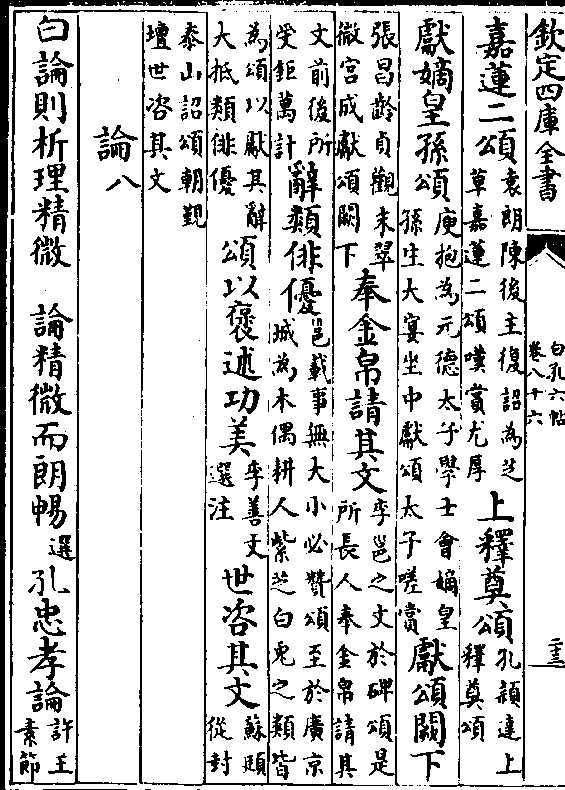 欽定四庫全書
白孔六帖
卷八十六
二十三
嘉蓮二頌袁朗陳後主復詔為芝草嘉蓮二頌嘆賞尤厚 上釋奠頌孔穎達上釋奠頌
獻嫡皇孫頌庾抱為元德太子學士會嫡皇孫生大宴坐中獻頌太子嗟賞 獻頌闕下
張昌齡貞觀末翠微宮成獻頌闕下 奉金帛請其文李邕之文於碑頌是所長人奉金帛請其
文前後所受鉅萬計 辭類俳優邕載事無大小必贊頌至於廣京城為木偶耕人紫芝白兎之類皆
為頌以獻其辭大抵類俳優 頌以褒述功美李善文選注 世咨其文蘇頲從封
泰山詔頌朝覲壇世咨其文
論八
白論則析理精微 論精微而朗暢選 孔忠孝論許王素節